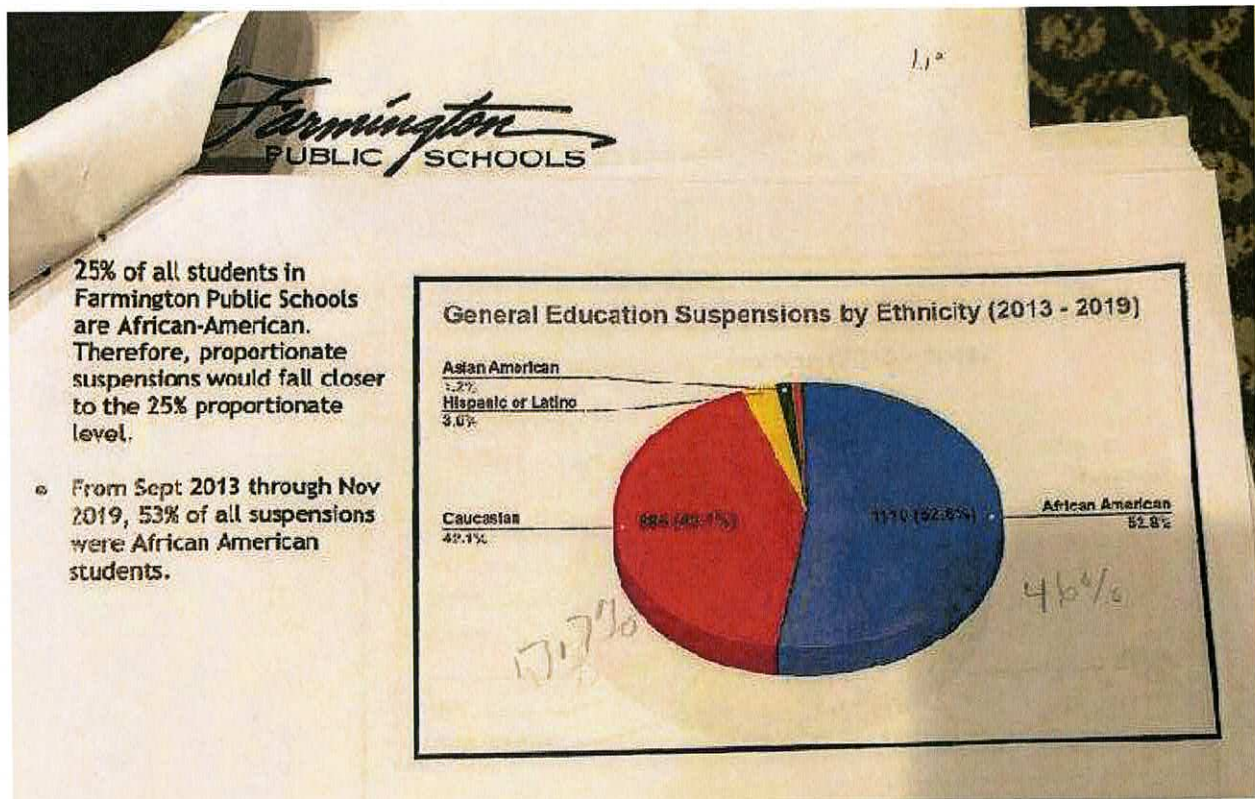 Farmington
PUBLIC SCHOOLS
25% of all students in
Farmington Public Schools
are African-American.
Therefore, proportionate
suspensions would fall closer
to the 25% proportionate
level.
From Sept 2013 through Nov
2019, 53% of all suspensions
were African American
students.
General Education Suspensions by Ethnicity (2013 - 2019)
Asian American
Hispanic or Latino
3.6%
Caucasian
42.1%
(42.1%)
1110 (52.8%)
African American
52.8%
46%